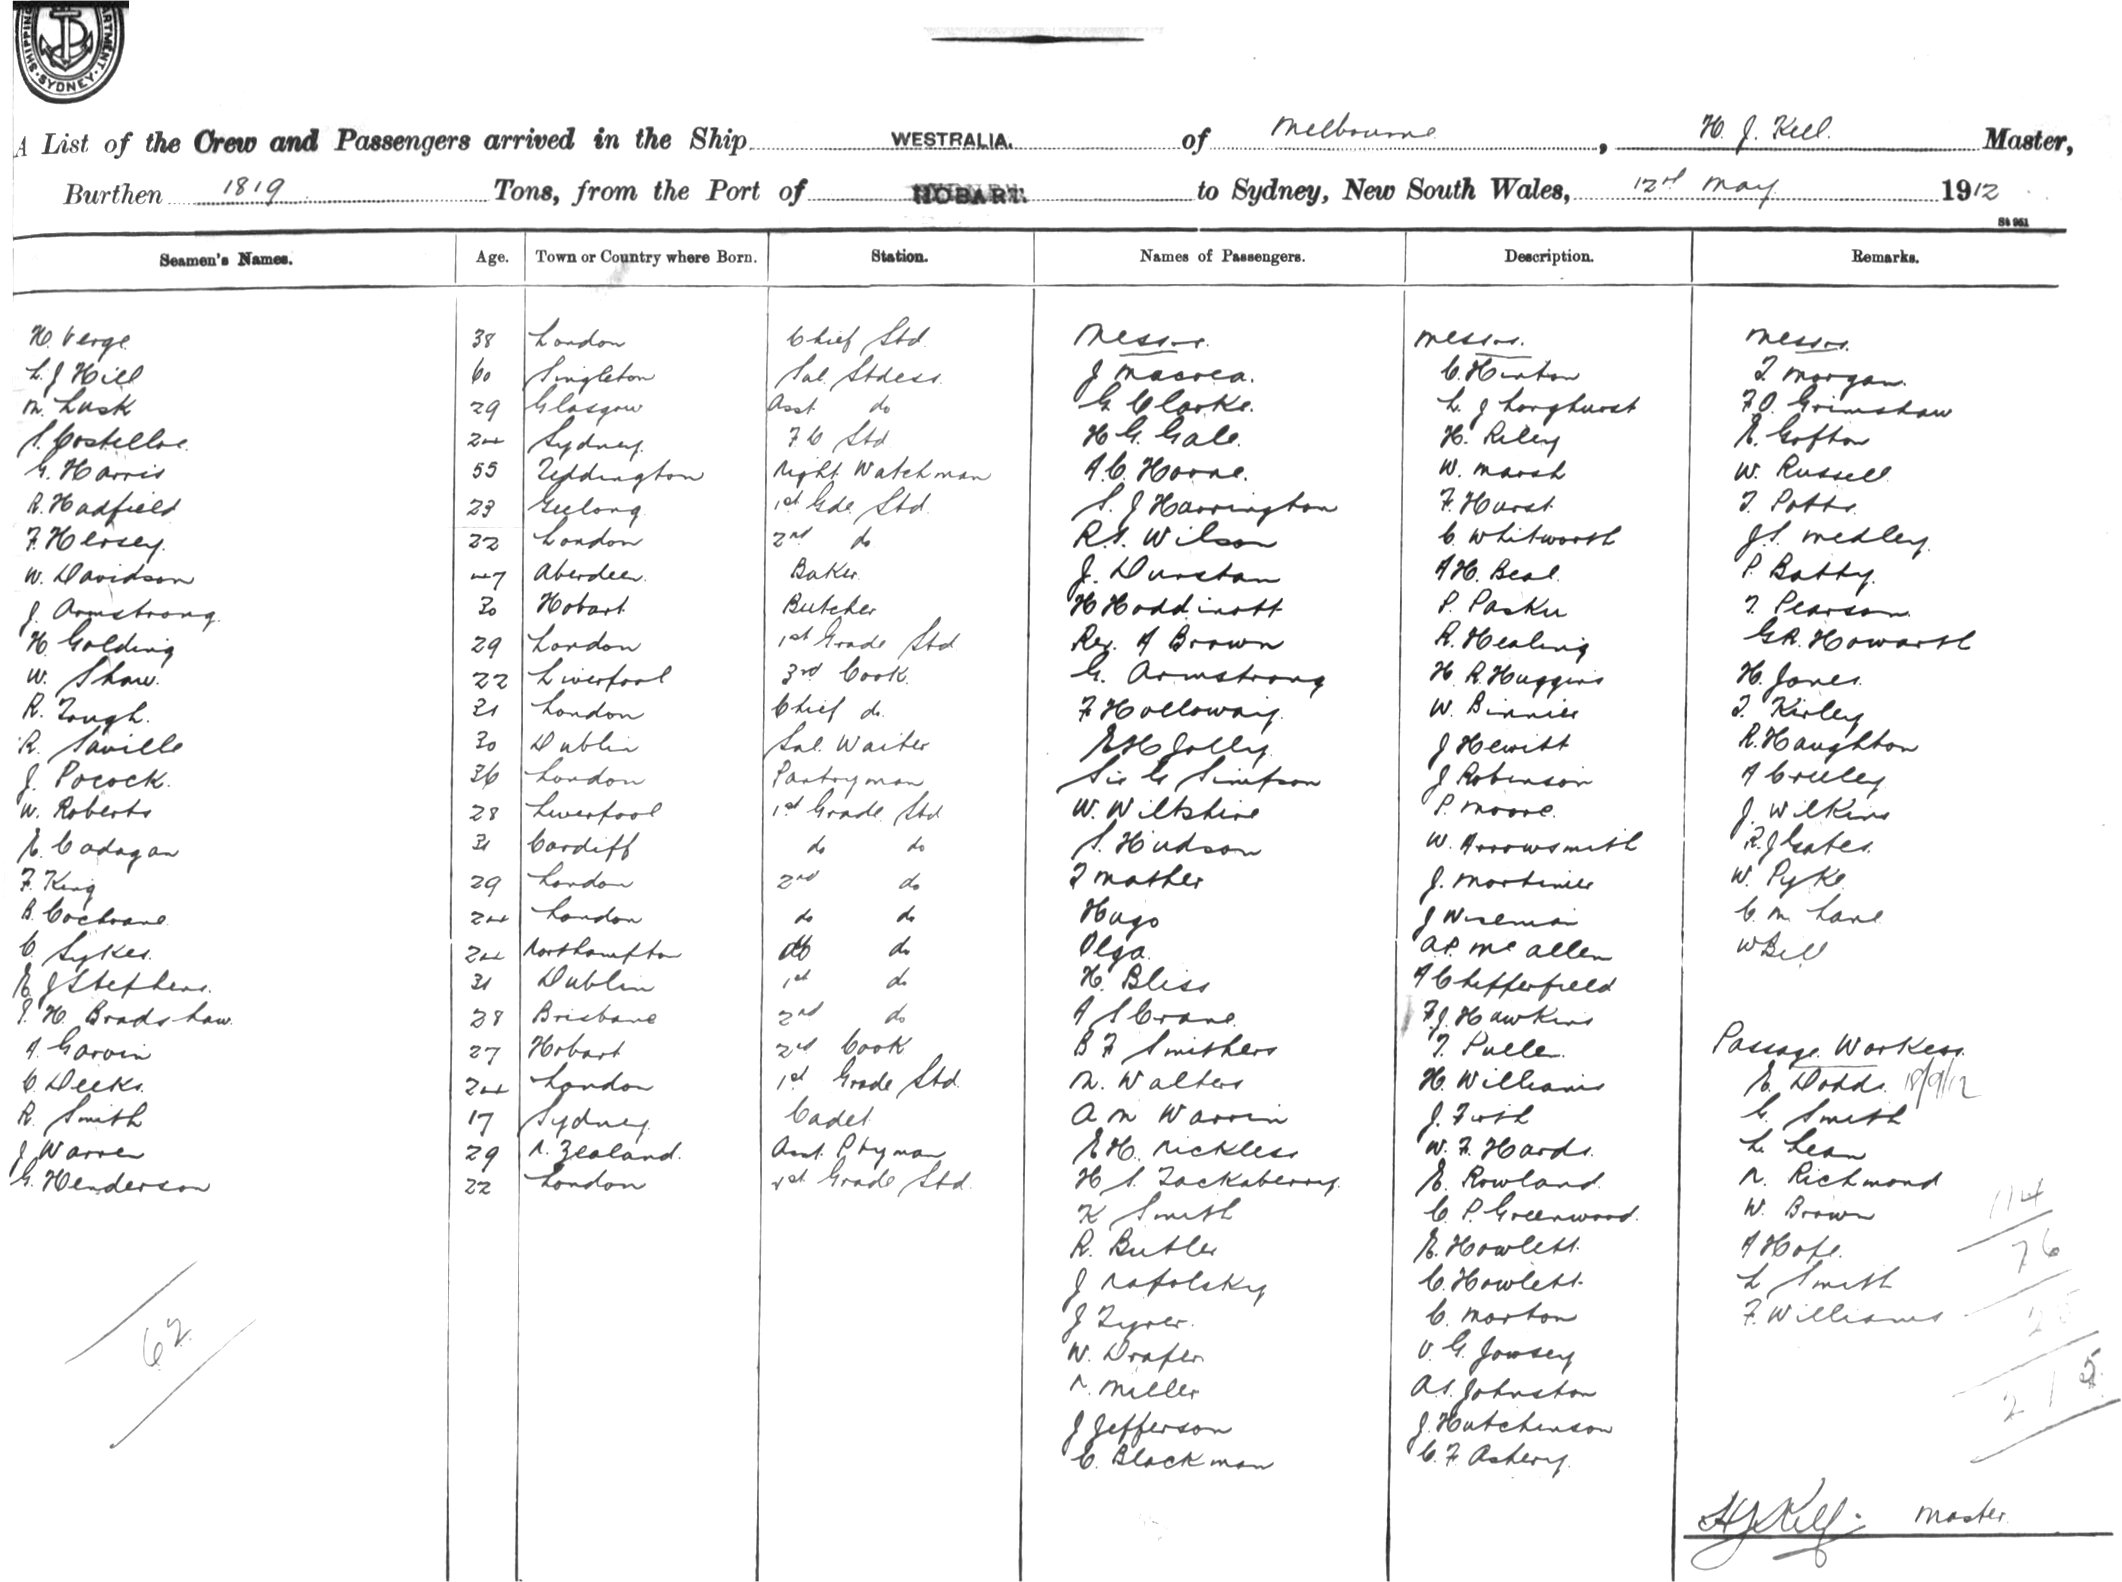 SHIPPING DEPARTMENT SYDNEY
A List of the Crew and Passengers arrived in the Ship WESTRALIA. of Melbourne, H. J. Kell. Master,
Burthen 1819 Tons, from the Port of HOBART. to Sydney, New South Wales, 12th May 1912
St 951
Seamen's Names. Age. Town or Country where Born. Station. Names of Passengers. Description. Remarks.
H. Verge 38 London Chief Std Messrs. Messrs. Messrs.
L. J Hill 60 Singleton Sal. Stdess J Macrea. C. Hinton T Morgan
M. Lusk 29 Glasgow Asst do G. Clarke. L. J Longhurst F O. Grimshaw
S. Costelloe 24 Sydney F C Std H G. Gale. H. Riley E Gofton
G. Harris 55 Teddington Night Watchman A. C. Hoone. W. Marsh W. Russell
R. Hadfield 23 Geelong 1st Gde Std. S. J Harrington F. Hurst T. Potts.
F. Hersey. 22 London 2nd do R. S. Wilson C. Whitworth J S. Medley.
W. Davidson 47 Aberdeen. Baker J. Durstan A H. Beal. P. Batty.
J. Armstrong. 30 Hobart Butcher H Hoddinott P. Pasku T Pearson
H. Golding 29 London 1st Grade Std Rev. A Brown R. Healing G R. Howarth
W. Shaw. 22 Liverpool 3rd Cook. G. Armstrong H. R. Huggins H. Jones.
R. Tough. 31 London Chief do. F Holloway. W. Binnies T. Kirley
R. Saville 30 Dublin Sal. Waiter E H Jolly. J Hewitt R. Haughton
J. Pocock. 36 London Pantryman Sir G Simpson J Robinson A Cruley
W. Roberts 28 Liverpool 1st Grade Std W. Wiltshire P. Moore. J. Wilkins
E. Cadogan 31 Cardiff do do S. Hudson W. Arrowsmith R. J Gates.
F. King 29 London 2nd do T Mather J. Mortimer W. Pyke
B. Cochrane 24 London do do Hugo J Wiseman C. M. Lane
C. Sykes. 24 Northampton do do Olga. A. P. McAllen W Bell
E J Stephens. 31 Dublin 1st do H. Bliss A Chipperfield
S. H. Bradshaw. 28 Brisbane 2nd do A S Crane F. J. Hawkins
A. Garvin 27 Hobart 2nd Cook B F Smithers T. Pullen Passage Workers.
C. Deeks. 24 London 1st Grade Std. N. Walters H. Williams E. Dodds. 18/9/12
R. Smith 17 Sydney. Cadet A M Warrin J. Firth G. Smith
J Warren 29 N. Zealand. Asst. Ptryman E H. Nickless W. F. Hards. L. Lean
G. Henderson 22 London 1st Grade Std. H. S. Zackaberry. E. Rowland N. Richmond
K Smith C. P. Greenwood. W. Brown 114
R. Butler E. Howlett. A Hope. 76
J Napolsky C. Howlett L Smith
J Tyrer. C. Morton F. Williams 25
62 W. Draper V. G. Jowsey
N. Miller A. S. Johnston 215
J Jefferson J. Hutchinson
C. Blackman C. F Asbery.
H J Kell Master